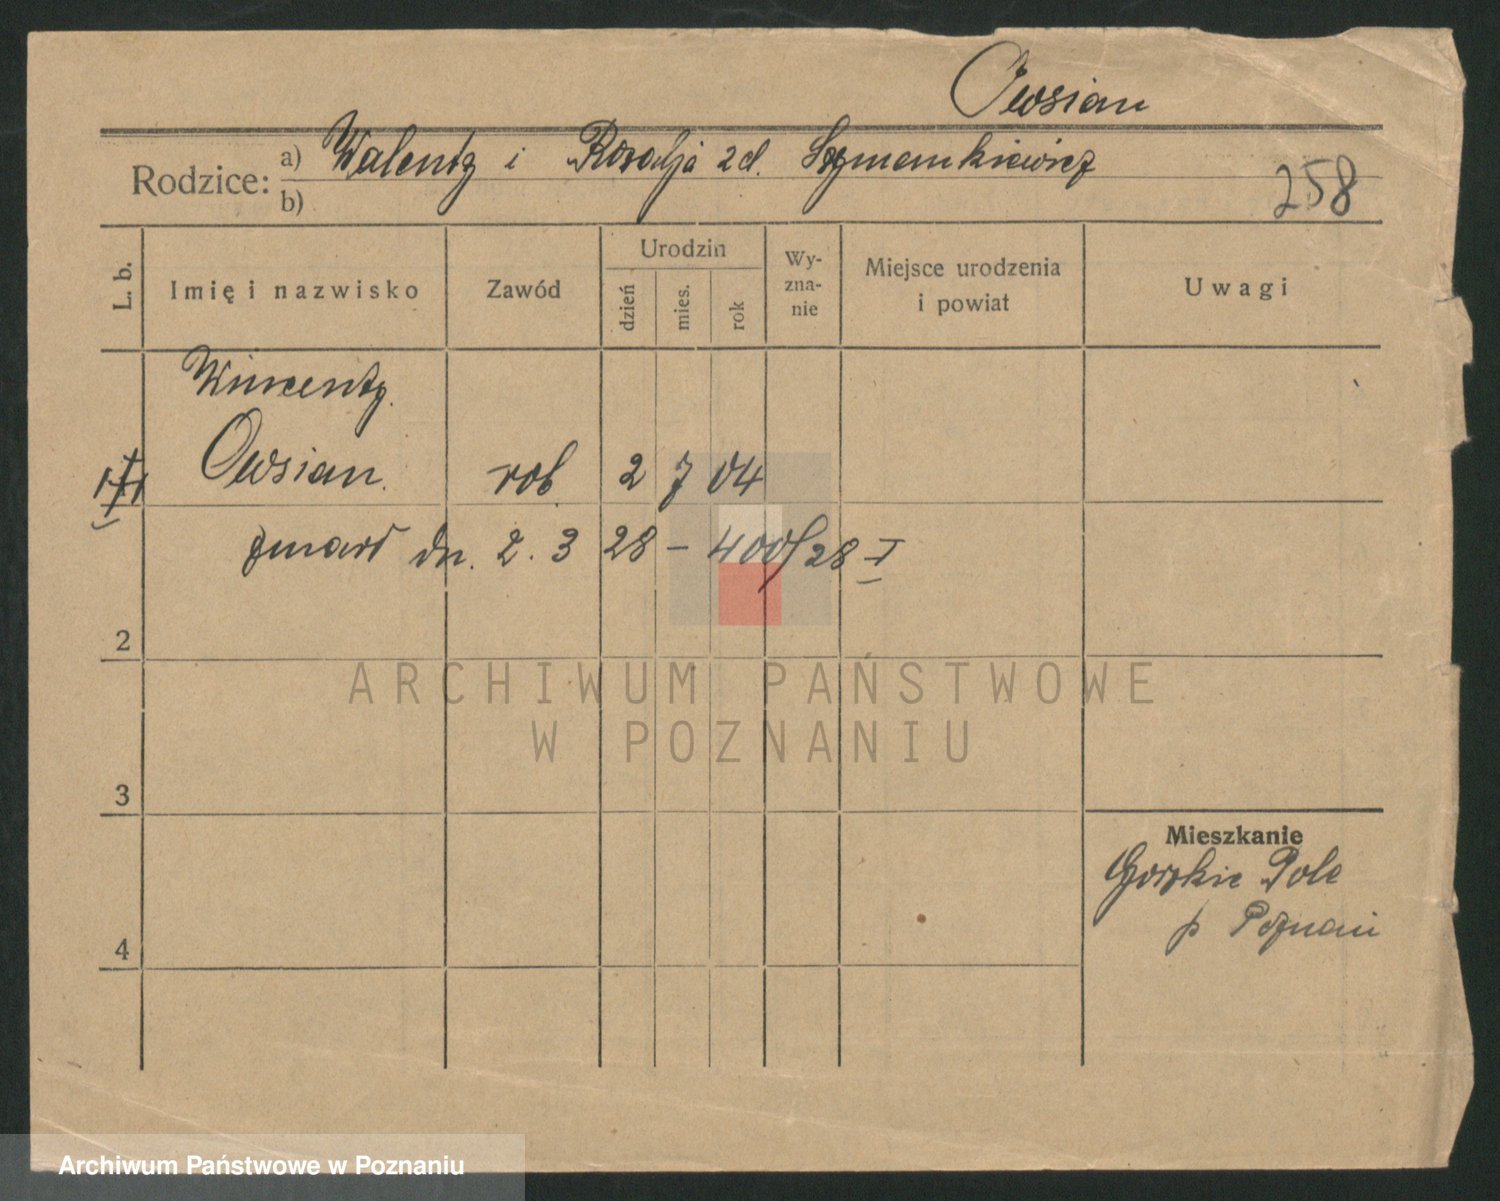 Owsian
Rodzice: a) Walenty i Rozalja 2 d. Szymankiewicz
b)
258
L. b.
Imię i nazwisko
Zawód
Urodzin
dzień
mies.
rok
Wy-
zna-
nie
Miejsce urodzenia
i powiat
Uwagi
Wincenty
Owsian. rob 2 7 04
zmarł dn. 2. 3 28 – 400/28 I
2
3
4
Mieszkanie
Gorzkie Pole
p Poznań
ARCHIWUM PAŃSTWOWE
W POZNANIU
Archiwum Państwowe w Poznaniu